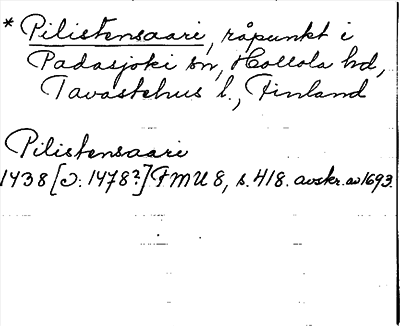 * Pilistensaari, råpunkt i
Padasjoki sn, Hollola hd,
Tavastehus l., Finland
Pilistensaari
1438 [ɔ: 1478?] FMU 8, s. 418. avskr. av 1693.